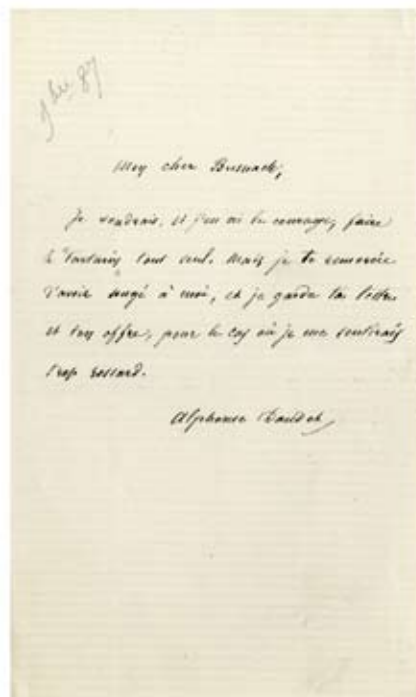 9bre 87
Mon cher Busnach,
Je voudrais, si j'en ai le courage, faire
le "Tartarin" tout seul. Mais je te remercie
d'avoir songé à moi, et je garde ta lettre
et ton offre, pour le cas où je me sentirais
trop rossard.
Alphonse Daudet